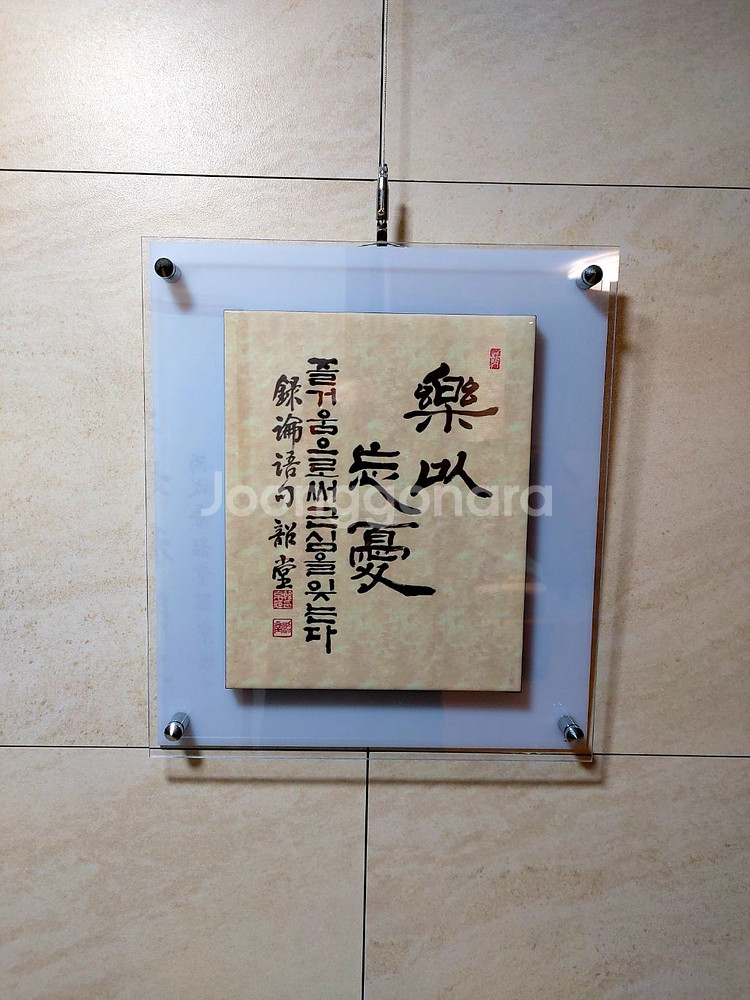 樂以
忘憂
즐거움으로써근심을잊는다
録論語句 韶堂
Joonggonara